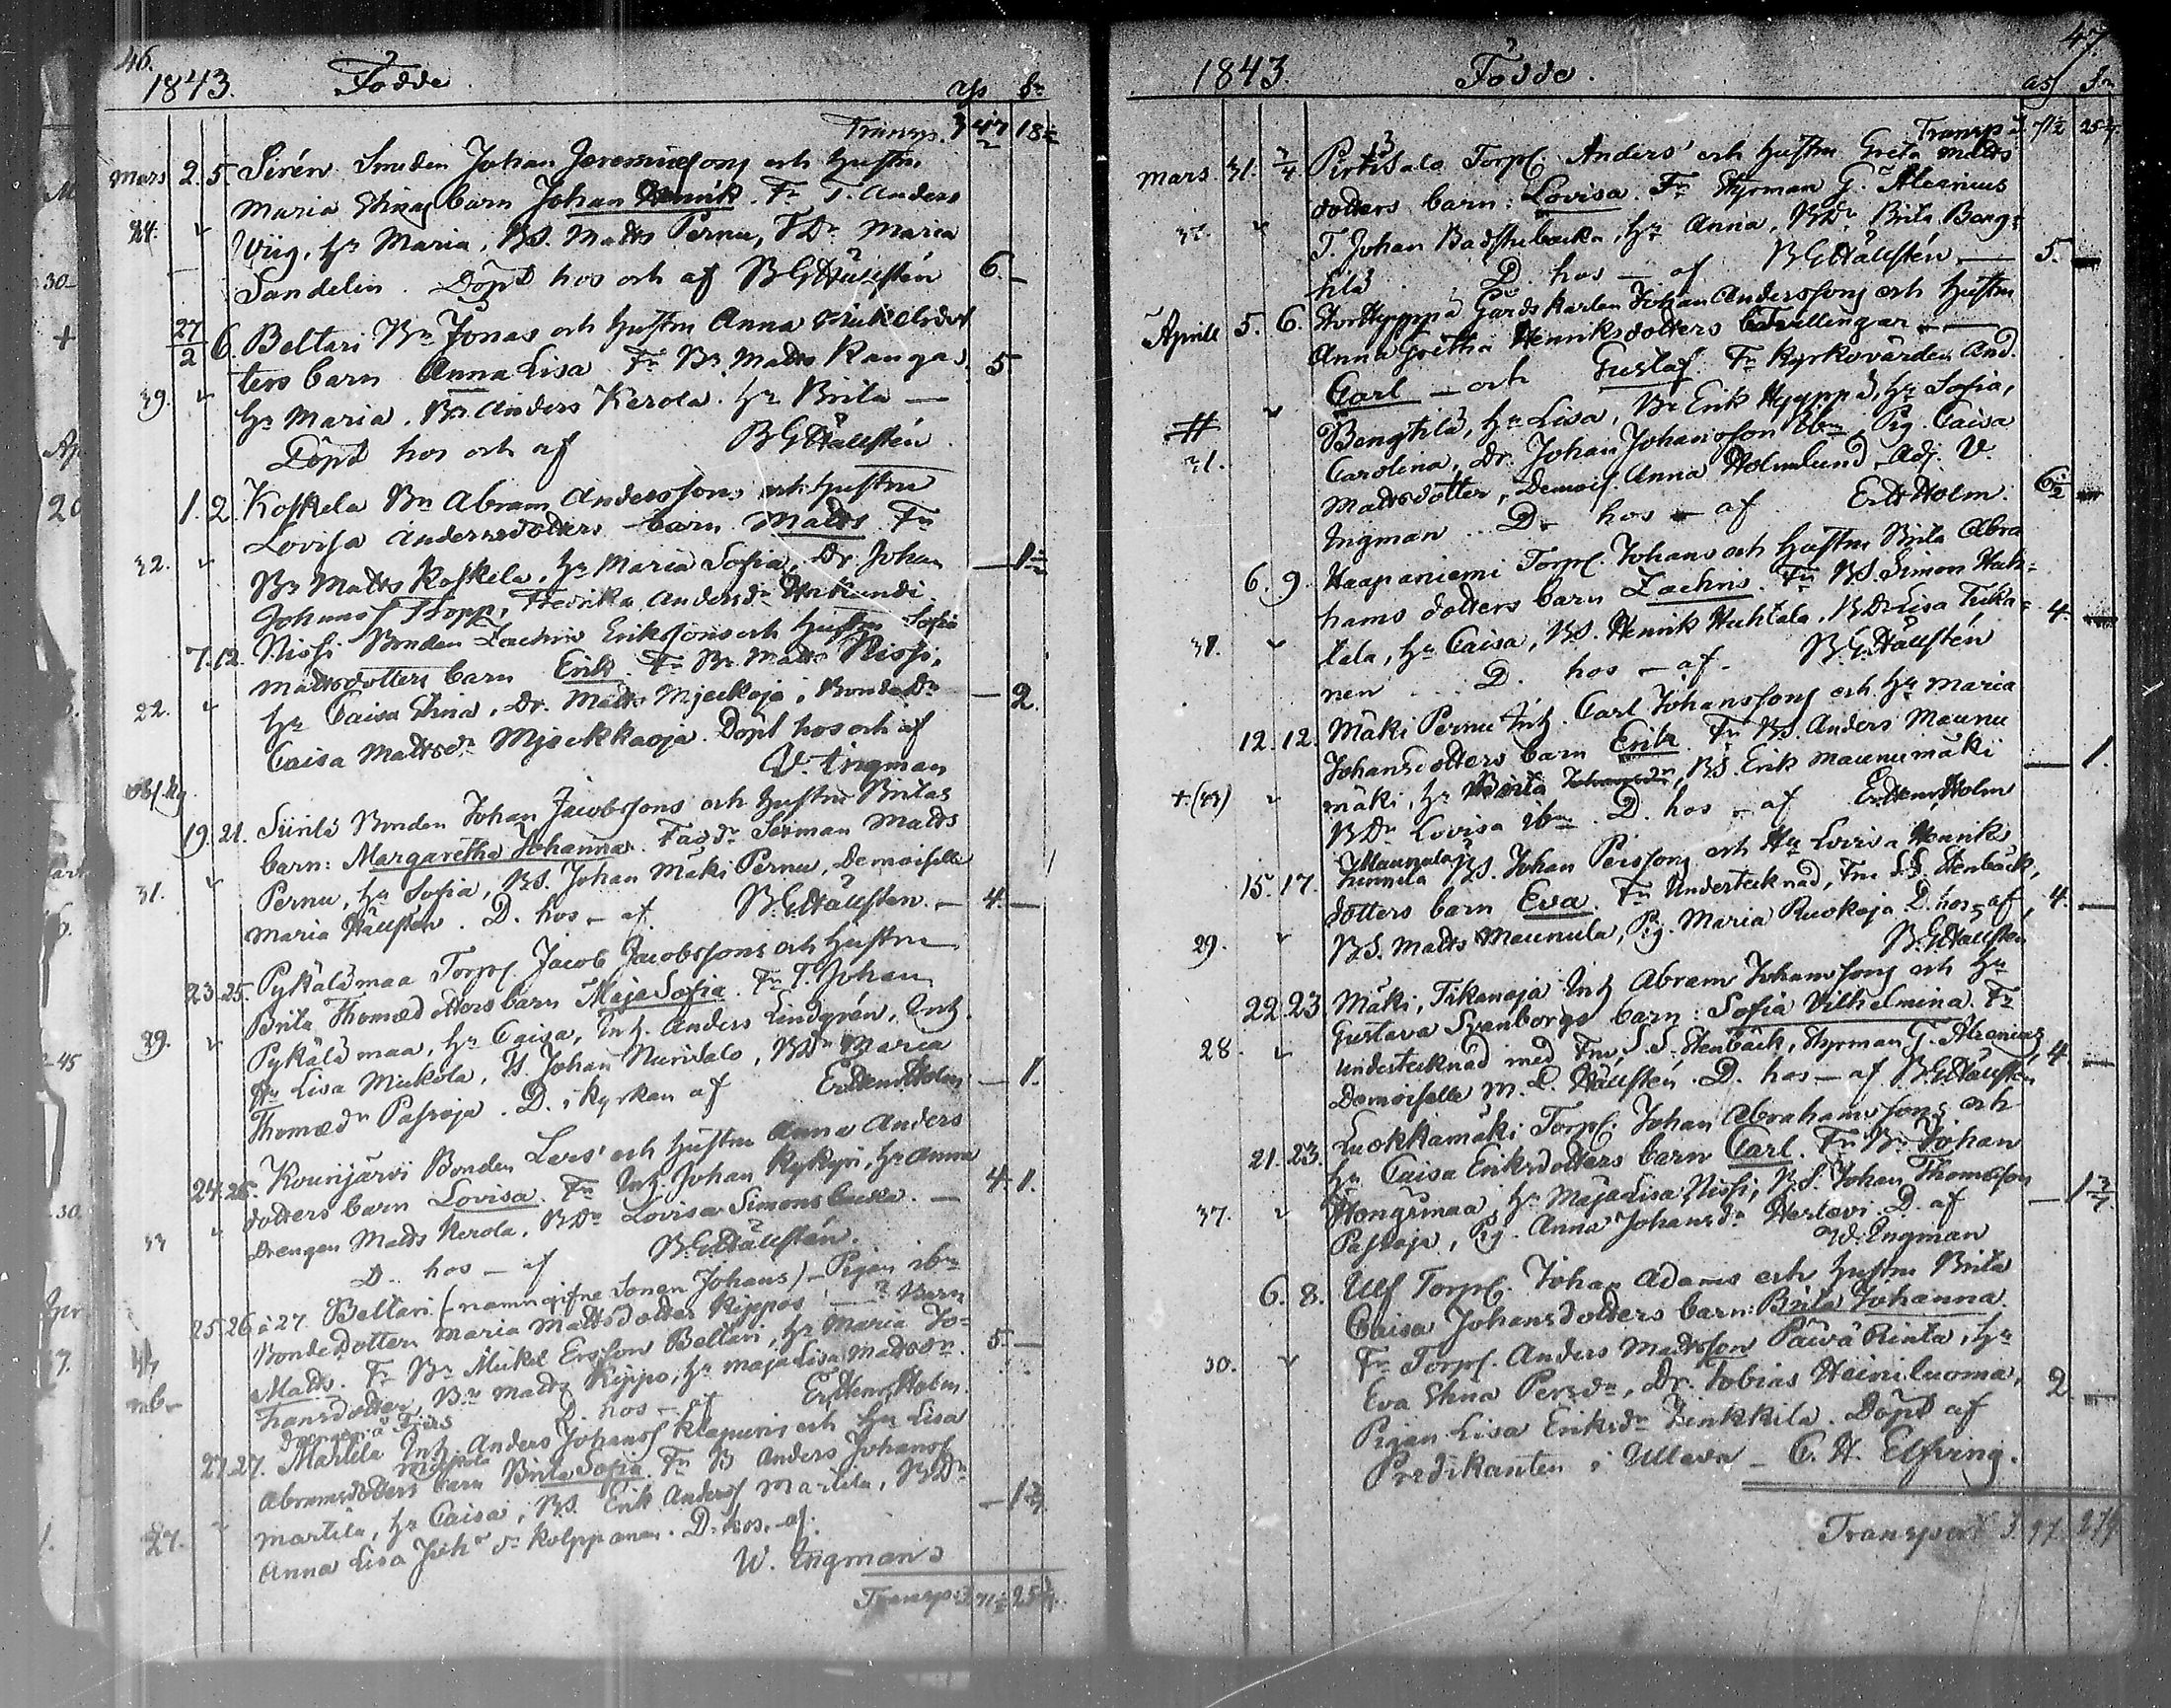 46.
1843. Födde.
Transp. 3 47 1/2 18
Mars 2. 5. Sirén Smeden Johan Jeremiæsons och hustru
Maria Stinas barn Johan Henrik. Fr T. Anders
24. Wiig, hr Maria, BS. Matts Pernu, TDr Maria
Sandelin. Döpt hos och af BGHällsten 6. –
27/2 6. Beltari Bn Jonas och hustru Anna Mickelsdot
ters barn Anna Lisa Fr Bn Matts Kangas, 5
39. hr Maria, Bn Anders Kerola, hr Brita —
Döpt hos och af BGHällstén
1. 2. Koskela Bn Abram Anderssons och hustru
Lovisa Andersdotters barn Matts Fr
32. Bn Matts Koskela, hr Maria Sofia, Dr. Johan
Johanss Tropp, Fredrika Andersdr
7. 12. Nissi Bonden Zachris Erikssons och hustru Sofia
Mattsdotters barn Erik. Fr Bn Matts Nissi,
22. hr Caisa Stina, Dr. Matts Mjeckoja, Bondedr — 2.
Caisa Mattsdr Mjöckkaoja. Döpt hos och af
W. Ingman
19. 21. Siirilä Bonden Johan Jacobssons och hustru Britas
barn: Margaretha Johanna. Fadr Sexman Matts
31. Pernu, hr Sofia, BS. Johan Mäki Pernu, Demoiselle
Maria Hällsten. D. hos – af BGHällsten. – 4. –
23. 25. Pykälämaa Torpf. Jacob Jacobssons och hustru
Brita Thomædotters barn Maja Sofia. Fr T. Johan
29. Pykälämaa, hr Caisa, Inh. Anders Lindgrén, Inh.
Hr Lisa Miekola, TS. Johan Nurisalo, BDr Maria
Thomædr Pasroja. D. i kyrkan af Er. Henr. Holm – 1.
24. 26. Kounijärvi Bonden Lars' och hustru Anna Anders
dotters barn Lovisa. Fr Inh. Johan Kykyri, hr Anna 4. 1.
33 Drengen Matts Kerola, BDr Lovisa Simonsbacka. —
D. hos – af BGHällstén.
25. 26 à 27 Beltari (namngifne sonen Johans) – Pigan ibm
Bondedottern Maria Mattsdotter Kippos — Barn
Matts. Fr Bn Mickel Ersson Beltari, hr Maria Jo- 5. –
hansdotter, Bn Matts Kippo, hr Maja Lisa Mattsdr.
D. hos – af Er. Henr. Holm.
27. 27. Martila Inh. Anders Johanss Klapuris och hu Lisa
Abramsdotters barn Brita Sofia. Fr B Anders Johanss
Martila, hr Caisa, BS. Erik Anderss Martila, BDr
27. Anna Lisa Johsdr Kolppanen. D. hos – af.
W. Ingman
Transp: 3 71 1/2 25 3/4
47.
1843. Födde.
Transp 3. 71 1/2 25 3/4.
Mars 31. 2/4 Pirtisalo Torpf. Anders' och hustru Greta Matts
dotters barn: Lovisa. Fr Styrman G. Alcenius
T. Johan Badstubacka, hr Anna, BDr Brita Beng-
tilä D. hos – af BGHällstén. — 5. –
Aprill 5. 6. Stor Hyyppä Gårdskarlen Johan Anderssons och hustru
Anna Gretha Henriksdotters Tvillingar. —
Carl – och Gustaf. Fr Kyrkovärden And.
Bengtilä, hr Lisa, Bn Erik Hyyppä, hr Sofia,
31. Carolina, Dr. Johan Johansson ibm, Pig. Caisa
Mattsdotter, Demois Anna Holmlund, Adj. W.
Ingman. D. hos – af Er. H. Holm. 6 1/2 –
6. 9. Haapaniemi Torpf. Johans och hustru Brita Abra
hams dotters barn Zachris. Fr BS. Simon Huh-
31. tala, hr Caisa, BS. Henrik Huhtala, BDr Lisa Tuka- 4. –
nen D. hos – af. BGHällstén
12. 12. Mäki Pernu Inh. Carl Johanssons och hr Maria
Johansdotters barn Erik. Fr BS. Anders Maunu
+.(43) mäki, hr Brita, BS. Erik Maunumäki — 1.
BDr Lovisa ibm. D. hos – af Er. Henr. Holm
15. 17. Maunula BS. Johan Perssons och Hu Lovisa Henriks
dotters barn Eva. Fr Undertecknad, Fru S. S. Stenbäck,
29. BS. Matts Maunula, Pig. Maria Ruokoja D. hos – af 4. –
BGHällsten
22. 23 Mäki, Tikanoja Inh Abram Johanssons och hr
Gustava Svanborgs barn: Sofia Vilhelmina. Fr
28. undertecknad med Fru S. S. Stenbäck, Styrman G. Alcenius, 4. –
Demoiselle M. L. Hällstén. D. hos – af BGHällstén
21. 23. Luokkamäki Torpf. Johan Abrahamssons och
hr Caisa Eriksdotters barn Carl. Fr Bn Johan
37. Hongismaa, hr Maja Lisa Nissi, BS. Johan Thomæsson — 1 3/4
Pasroja, Pig. Anna Johansdr Herlevi. D. af
W. Engman
6. 8. Ulf Torpf. Johan Adams och hustru Brita
Caisa Johansdotters barn: Brita Johanna.
30. Fr Torpf. Anders Mattsson Päivärinta, hr
Eva Stina Persdr, Dr. Tobias Heiniluoma,
Pigan Lisa Eriksdr Finkkilä. Döpt af 2 –
Predikanten i Ullava – C. H. Elfving.
Transport 3. 97. 27 1/2.